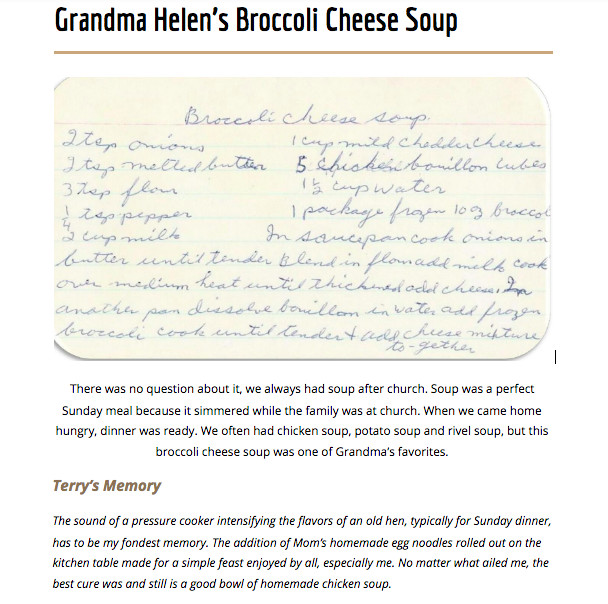 Grandma Helen's Broccoli Cheese Soup
Broccoli cheese soup.
2 tsp onions 1 cup mild chedder cheese
2 tsp melted butter 5 chicken bouillon cubes
3 tsp flour 1½ cup water
¼ tsp pepper 1 package frozen 10 oz broccol
2 cup milk In saucepan cook onions in
butter until tender Blend in flour add milk cook
over medium heat until thickened add cheese. In
another pan dissolve bouillon in water add frozen
broccoli cook until tender + add cheese mixture
to-gether
There was no question about it, we always had soup after church. Soup was a perfect
Sunday meal because it simmered while the family was at church. When we came home
hungry, dinner was ready. We often had chicken soup, potato soup and rivel soup, but this
broccoli cheese soup was one of Grandma's favorites.
Terry's Memory
The sound of a pressure cooker intensifying the flavors of an old hen, typically for Sunday dinner,
has to be my fondest memory. The addition of Mom's homemade egg noodles rolled out on the
kitchen table made for a simple feast enjoyed by all, especially me. No matter what ailed me, the
best cure was and still is a good bowl of homemade chicken soup.